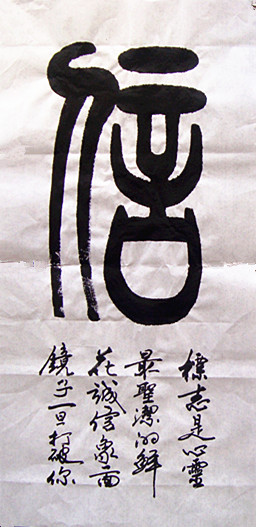 信
標志是心靈
最聖潔的鮮
花誠信象面
鏡子一旦打破你